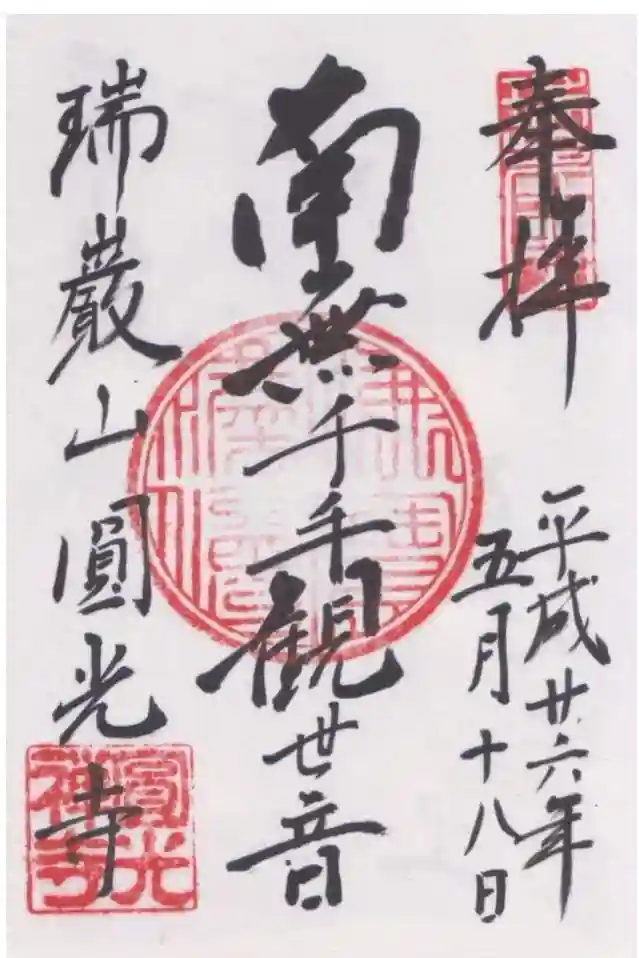 奉拝
平成廿六年
五月十八日
南無千手観世音
瑞巖山圓光寺
圓光禅寺